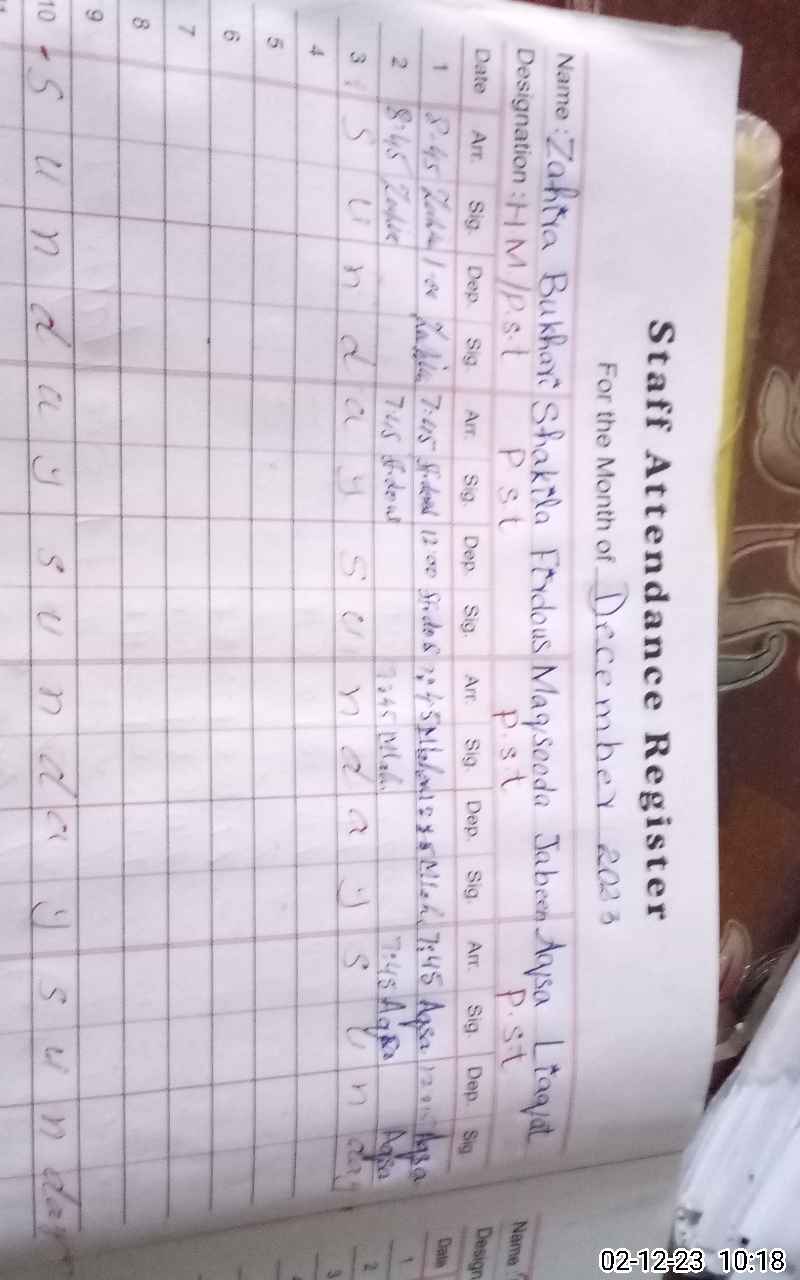 Staff Attendance Register
For the Month of December 2023
Name : Zahira Bukhari Shakila Firdous Maqsooda Jabeen Aqsa Liaqat
Designation : HM/P.S.t P S t P.S.t P.S.t
Date Arr. Sig. Dep. Sig. Arr. Sig. Dep. Sig. Arr. Sig. Dep. Sig. Arr. Sig. Dep. Sig
1 8:45 7:45 12:00 7:45 7:45 Aqsa Aqsa
2 8:45 7:45 7:45 7:45 Aqsa Aqsa
3 S U n d a y S U n d a y S U n day
4
5
6
7
8
9
10 S U n d a y S U n d a y S U n day
Name
Design
Date
1
2
3
02-12-23 10:18